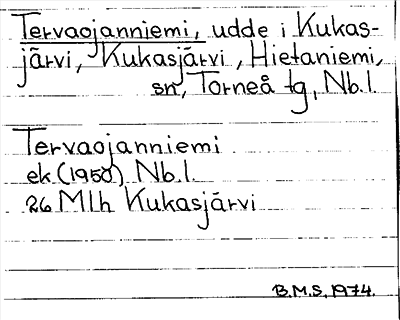 Tervaojanniemi, udde i Kukas-
järvi, Kukasjärvi, Hietaniemi,
sn, Torneå tg, Nb.l.
Tervaojanniemi
ek (1950) Nb.l.
26 Mlh Kukasjärvi
B.M.S. 1974.